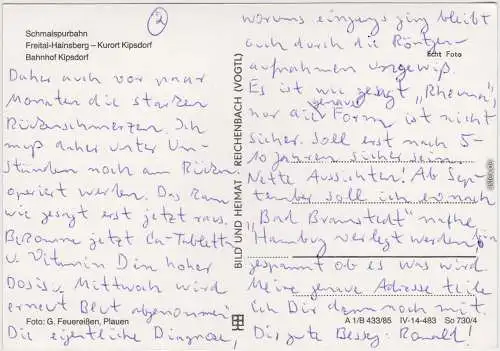 2
Schmalspurbahn
Freital-Hainsberg – Kurort Kipsdorf
Bahnhof Kipsdorf
Daher auch vor paar
Monaten die starken
Rückenschmerzen. Ich
muß daher unter Um-
ständen noch am Rücken
operiert werden. Das kam
wie gesagt erst jetzt raus.
Bekomme jetzt Ca-Tabletten
u. Vitamin D in hoher
Dosis. Mittwoch wird
erneut Blut abgenommen
Die eigentliche Diagnose,
Foto: G. Feuereißen, Plauen
BILD UND HEIMAT REICHENBACH (VOGTL)
worum's eingangs ging bleibt
auch durch die Röntgen-
Echt Foto
aufnahmen ungewiß.
Es ist wie gesagt "Rheuma"
genaue
nur die Form ist nicht
sicher. Soll erst nach 5-
10 Jahren sicher sein.
Nette Aussichten! Ab Sep-
tember soll ich evtl. nach
"Bad Bramstedt" nähe
"Hamburg" verlegt werden. Bin
gespannt ob es was wird
Meine genaue Adresse teile
ich Dir dann noch mit.
A 1/B 433/85 IV-14-483 So 730/4
Dir gute Besserg. Ronald!